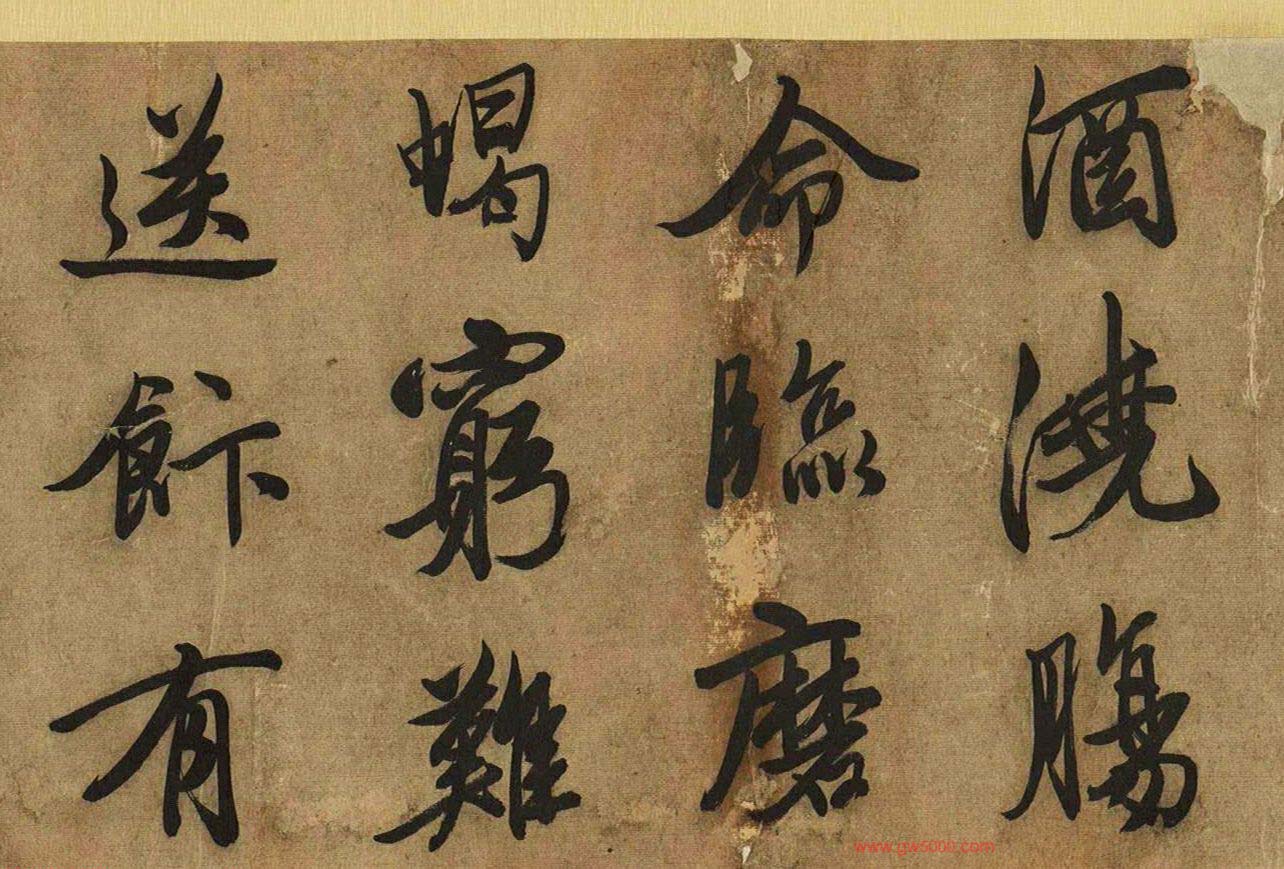 酒澆腸
命臨磨
蝎窮難
送餅有
www.gw5000.com